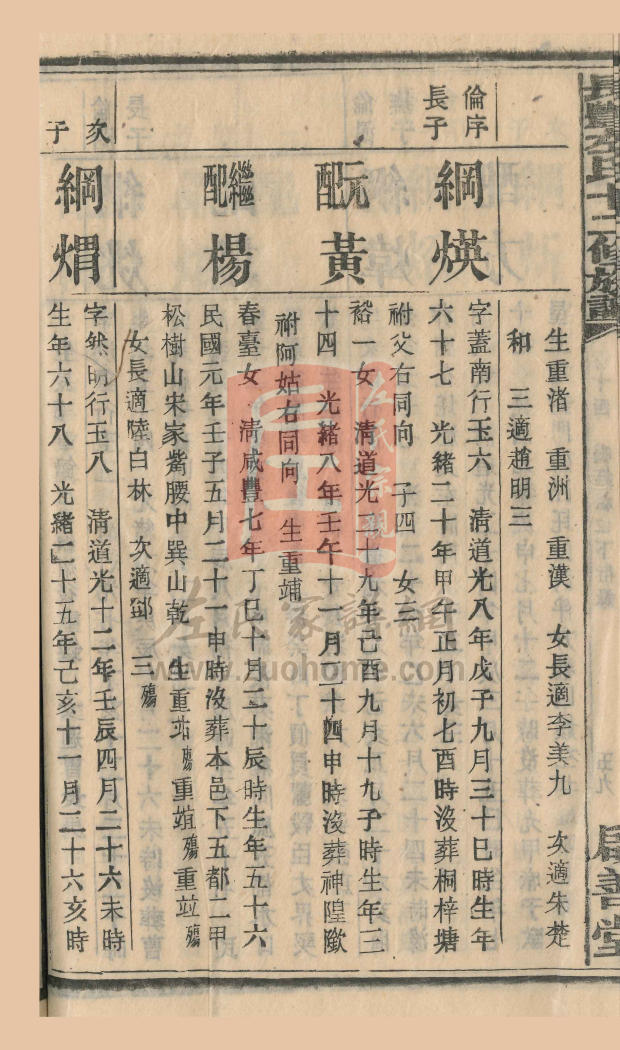 長豐左氏十二修族譜
五九
居善堂
生重渚 重洲 重漢 女長適李美九 次適朱楚
和 三適趙明三
倫序
長子
綱煐
字蓋南行玉六 清道光八年戊子九月三十巳時生年
六十七 光緒二十年甲午正月初七酉時沒葬桐梓塘
祔父右同向 子四 女三
元配黃
裕一女 清道光二十九年己酉九月十九子時生年三
十四 光緒八年壬午十一月二十四申時沒葬神隍
祔阿姑右同向 生重埔
繼配楊
春臺女 清咸豐七年丁巳十月二十辰時生年五十六
民國元年壬子五月二十一申時沒葬本邑下五都二甲
松樹山宋家觜腰中巽山乾 生重站殤 重竩殤 重竝殤
女長適陸白林 次適鄧 三殤
次子
綱焨
字然明行玉八 清道光十二年壬辰四月二十六未時
生年六十八 光緒二十五年己亥十一月二十六亥時
左氏宗親
左氏家譜網
www.zuohome.com